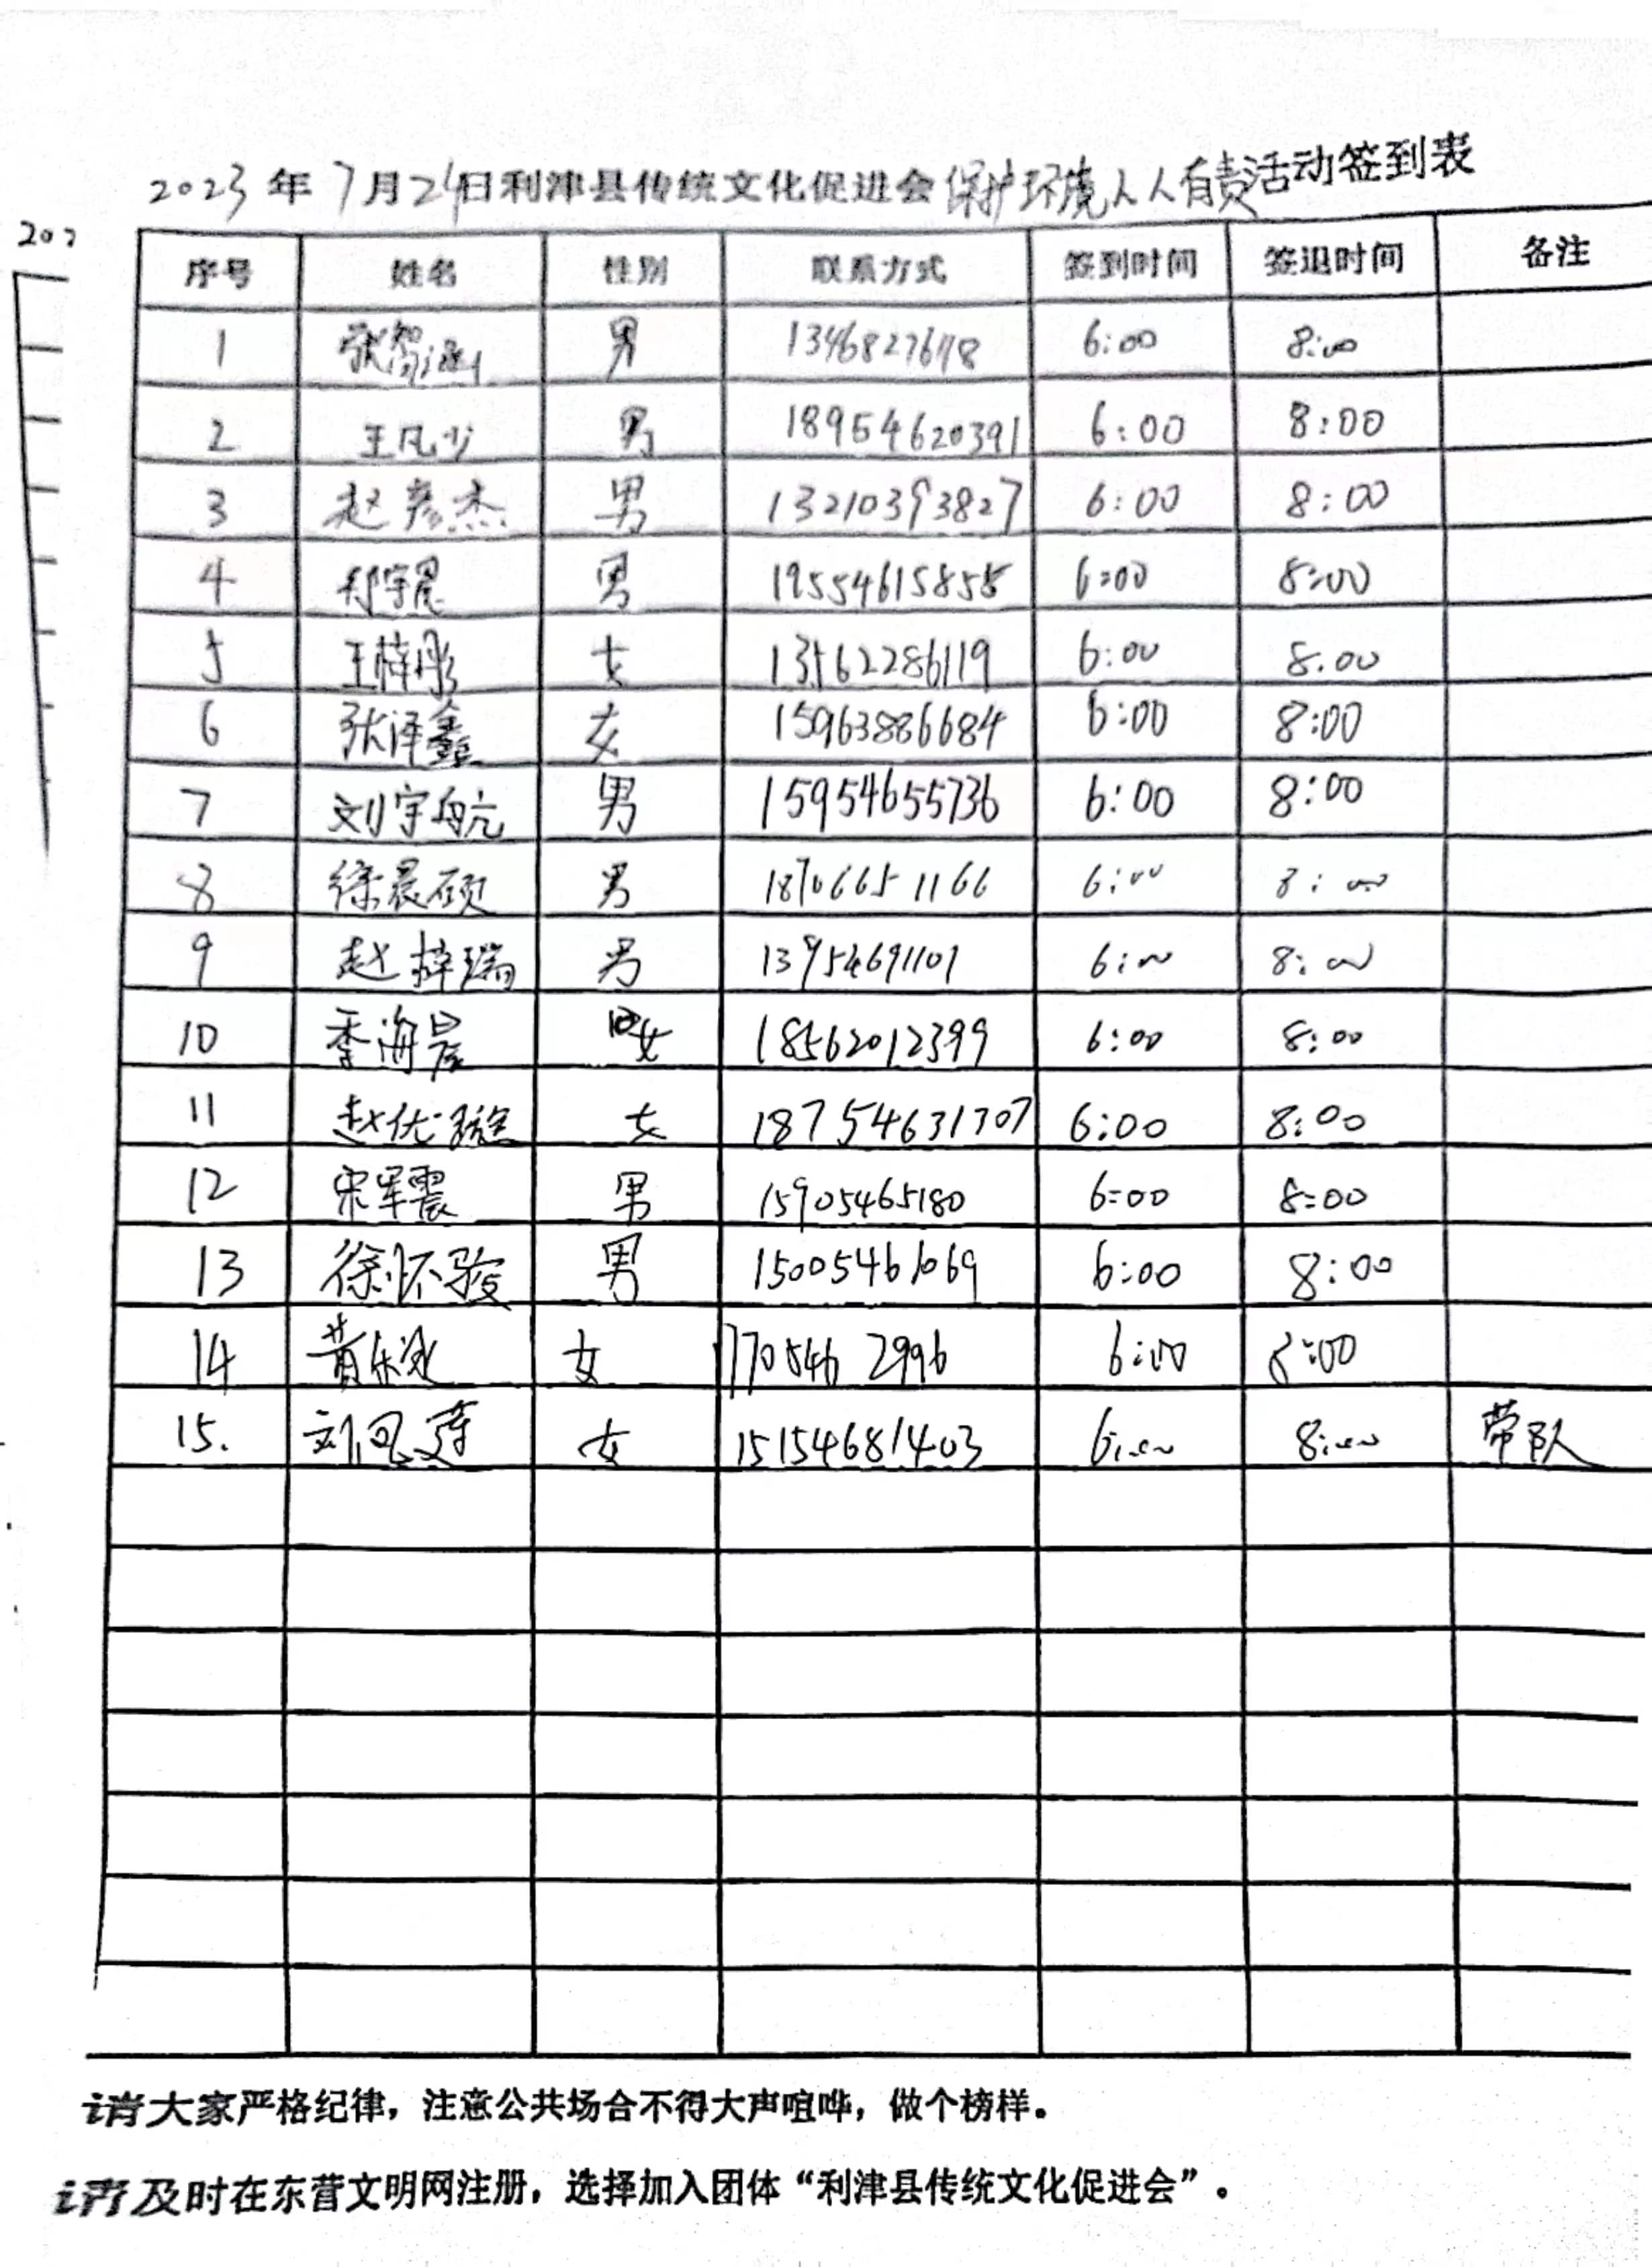 2023年7月24日利津县传统文化促进会保护环境人人有责活动签到表
202
序号 姓名 性别 联系方式 签到时间 签退时间 备注
1 张智渊 男 13468276118 6:00 8:00
2 王凡少 男 18954620391 6:00 8:00
3 赵彦杰 男 13210393827 6:00 8:00
4 郑宇晨 男 19554615858 6:00 8:00
5 王梓彤 女 13562286119 6:00 8:00
6 张泽鑫 女 15963886684 6:00 8:00
7 刘宇航 男 15954655736 6:00 8:00
8 徐晨硕 男 18706651166 6:00 8:00
9 赵梓瑞 男 13954691101 6:00 8:00
10 季海晨 女 18562012399 6:00 8:00
11 赵优璇 女 18754631307 6:00 8:00
12 宋军震 男 15905465180 6:00 8:00
13 徐怀骏 男 15005461069 6:00 8:00
14 黄乐冰 女 1705462996 6:00 8:00
15. 刘凤 女 15154681403 6:00 8:00 带队
请大家严格纪律，注意公共场合不得大声喧哗，做个榜样。
请及时在东营文明网注册，选择加入团体“利津县传统文化促进会”。